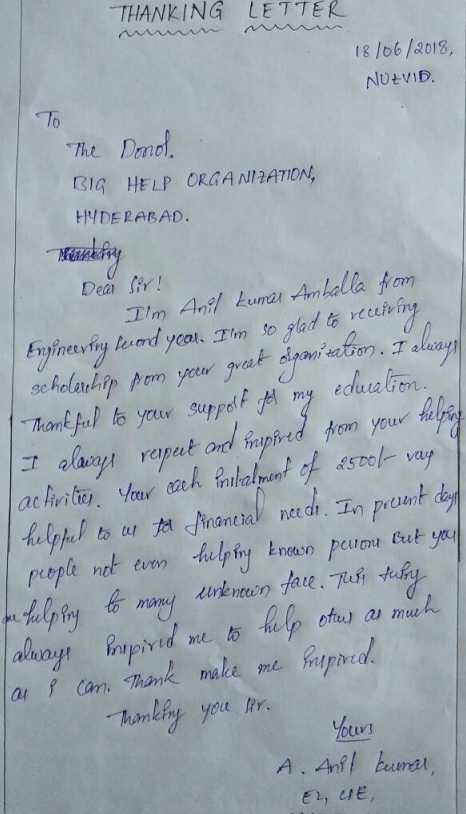 THANKING LETTER
18/06/2018,
NUZVID.
To
The Donor.
BIG HELP ORGANIZATION,
HYDERABAD.
Dear Sir!
I'm Anil kumar Amballa from
Engineering second year. I'm so glad to receiving
scholarship from your great organization. I always
thankful to your support for my education.
I always respect and inspired from your helping
activities. Your each instalment of 2500/- very
helpful to us for financial needs. In present days
people not even helping known persons but you
are helping to many unknown face. This thing
always inspired me to help others as much
as I can. Thank make me inspired.
Thanking you sir.
Yours
A. Anil kumar,
E2, CSE,